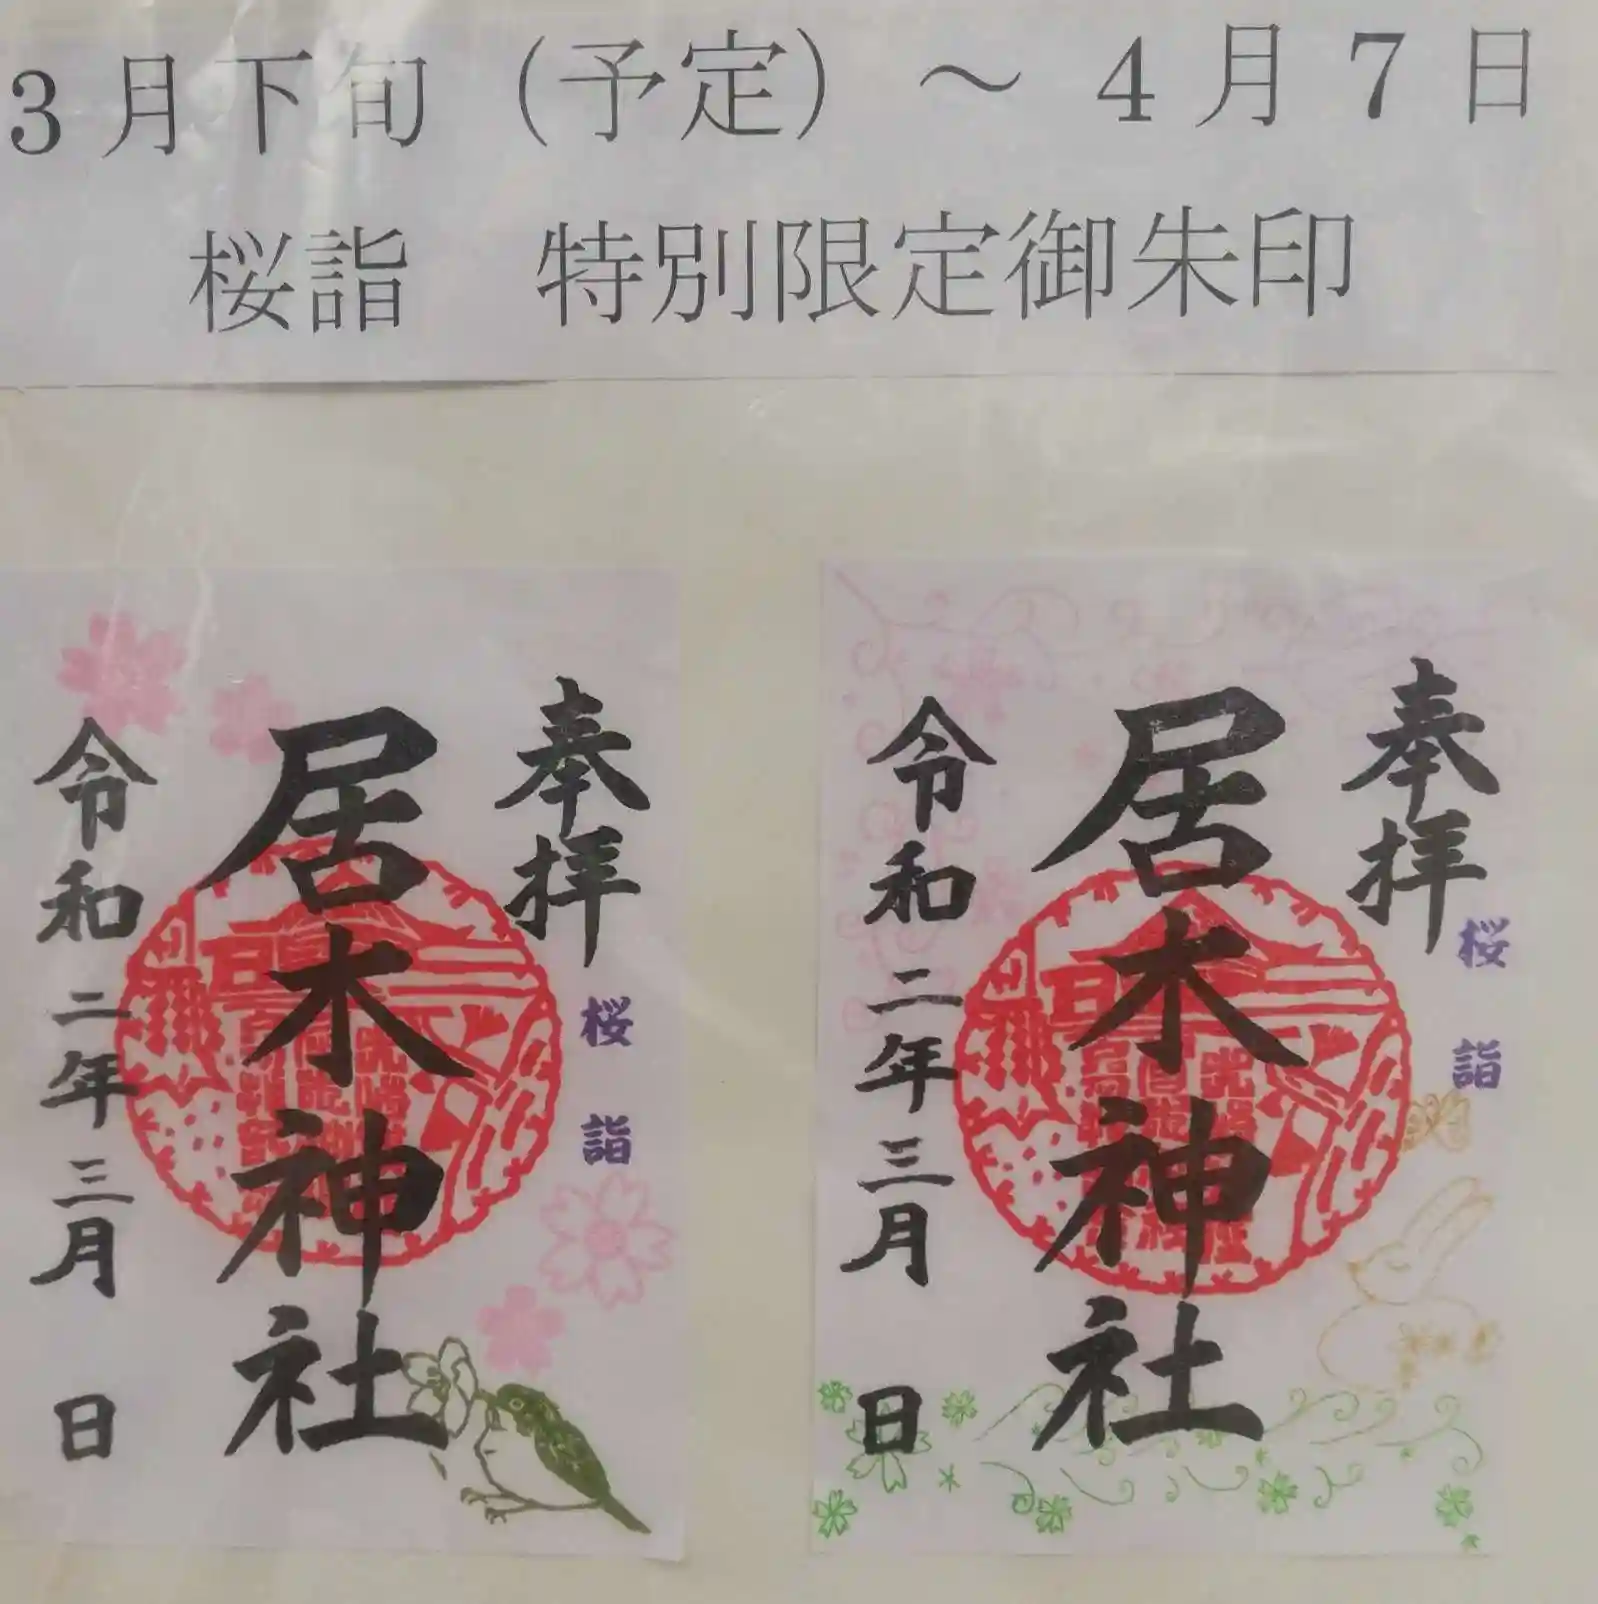 3月下旬（予定）～4月7日
桜詣　特別限定御朱印
奉拝
桜詣
居木神社
令和二年三月　日
奉拝
桜詣
居木神社
令和二年三月　日